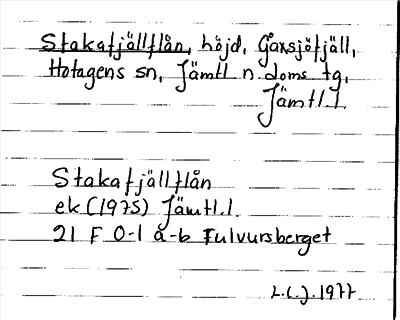 Stakafjällflån, höjd, Gåxsjöfjäll,
Hotagens sn, Jämtl n. doms tg,
Jämtl. l.
Stakafjällflån
ek (1975) Jämtl. l.
21 F 0-1 a-b Fulvursberget
L.C.J. 1977